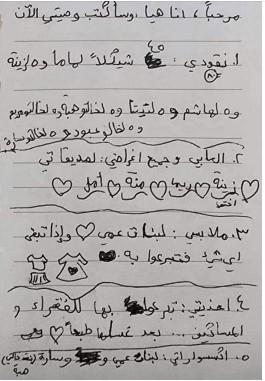 مرحباً، أنا هيا، وسأكتب وصيتي الآن
١. نقودي: ٤٥ شيكلاً لماما و٥ لزينة
٨٠
و٥ لهاشم و٥ لتيتا و٥ لخالتو هبة و٥ لخالتو مريم
و٥ لخالو عبود و٥ لخالتو سارة
٢. ألعابي وجمع أغراضي: لصديقاتي
زينة ريما منة أمل
أختها
٣. ملابسي: لبنات عمي وإذا تبقى
أي شيء فتبرعوا به
٤. أحذيتي: تبرعوا بها للفقراء و
المساكين... بعد غسلها طبعاً
٥. اكسسواراتي: لبنات عمي و وسارة
هبة